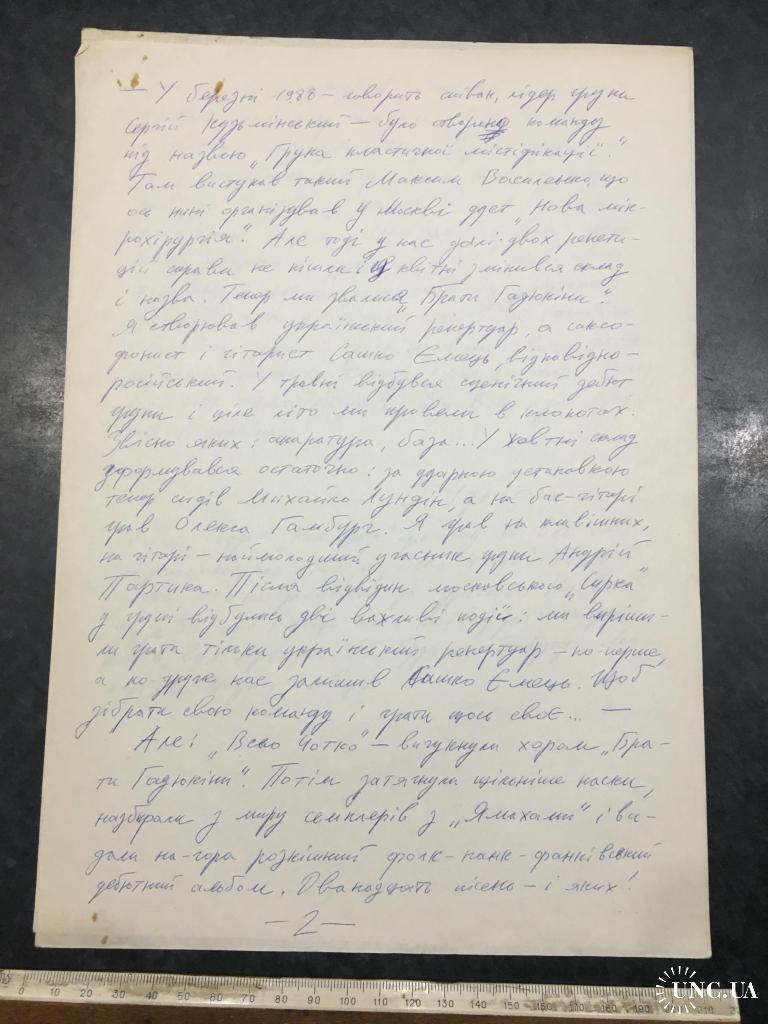 — У березні 1988 – говорить співак, лідер групи
Сергій Кузьмінський – було створено команду
під назвою „Група пластичної містіфікації".
Там виступав такий Максим Василенко, що
ось нині організував у Москві дует „Нова мік-
рохірургія". Але тоді у нас далі двох репети-
цій справи не пішли і в квітні змінився склад
і назва. Тепер ми звалися „Брати Гадюкіни".
Я створював український репертуар, а саксо-
фоніст і гітарист Сашко Ємець, відповідно –
російський. У травні відбувся сценічний дебют
групи і ціле літо ми провели в клопотах.
Звісно яких: апаратура, база... У жовтні склад
сформувався остаточно: за ударною установкою
тепер сидів Михайло Лундін, а на бас-гітарі
грав Олекса Гамбург. Я грав на клавішних,
на гітарі – наймолодший учасник групи Андрій
Партика. Після відвідин московського „Сирка"
у групі відбулись дві важливі події: ми виріши-
ли грати тільки український репертуар – по-перше,
а по-друге нас залишив Сашко Ємець. Щоб
зібрати свою команду і грати щось своє... —
Але: „Всьо Чотко" – вигукнули хором „Бра-
ти Гадюкіни". Потім затягнули щільніше паски,
назбирали з миру семплерів з „Ямахами" і ви-
дали на-гора розкішний фолк-панк-франківський
дебютний альбом. Дванадцять пісень – і яких!
— 2 —
0 10 20 30 40 50 60 70 80 90 100 110 120 130 140 150 160 170
UNC.UA